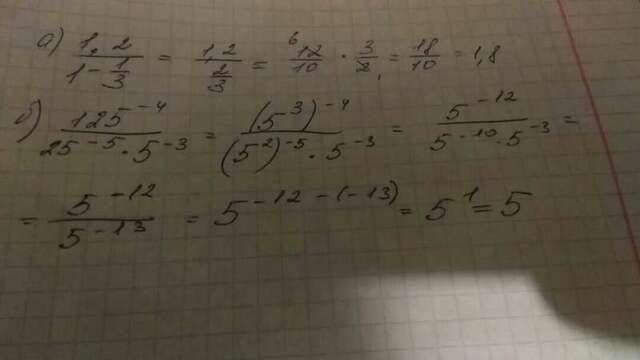 а) 1,2/(1-1/3) = 1,2/(2/3) = 6 12/10 · 3/2 1 = 18/10 = 1,8
б) 125^-4/(25^-5 · 5^-3) = (5^3)^-4/((5^2)^-5 · 5^-3) = 5^-12/(5^-10 · 5^-3) =
= 5^-12/5^-13 = 5^-12-(-13) = 5^1 = 5